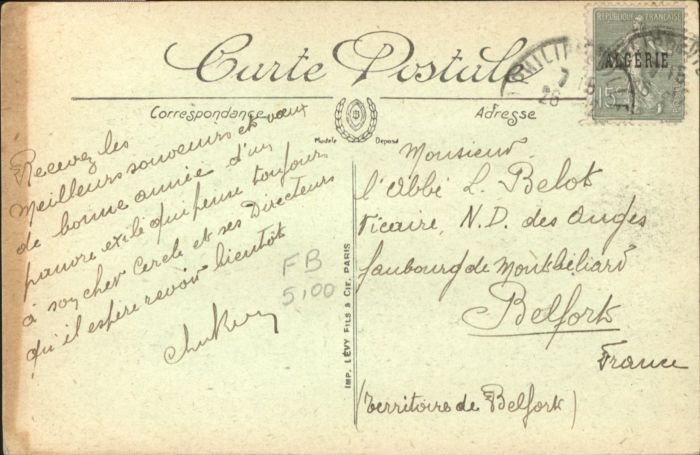 Carte Postale
Correspondance
Adresse
Modèle Déposé
RÉPUBLIQUE FRANÇAISE
ALGÉRIE
15
PHILIPPEVILLE
Recevez les
meilleurs souvenirs et vœux
de bonne année d'un
pauvre exilé qui pense toujours
à son cher Cercle et ses Directeurs
qu'il espère revoir bientôt
FB
5,00
IMP. LÉVY FILS & CIE, PARIS
Monsieur
l'Abbé L. Belot
Vicaire, N.D. des Anges
faubourg de Montbéliard
Belfort
France
(Territoire de Belfort)